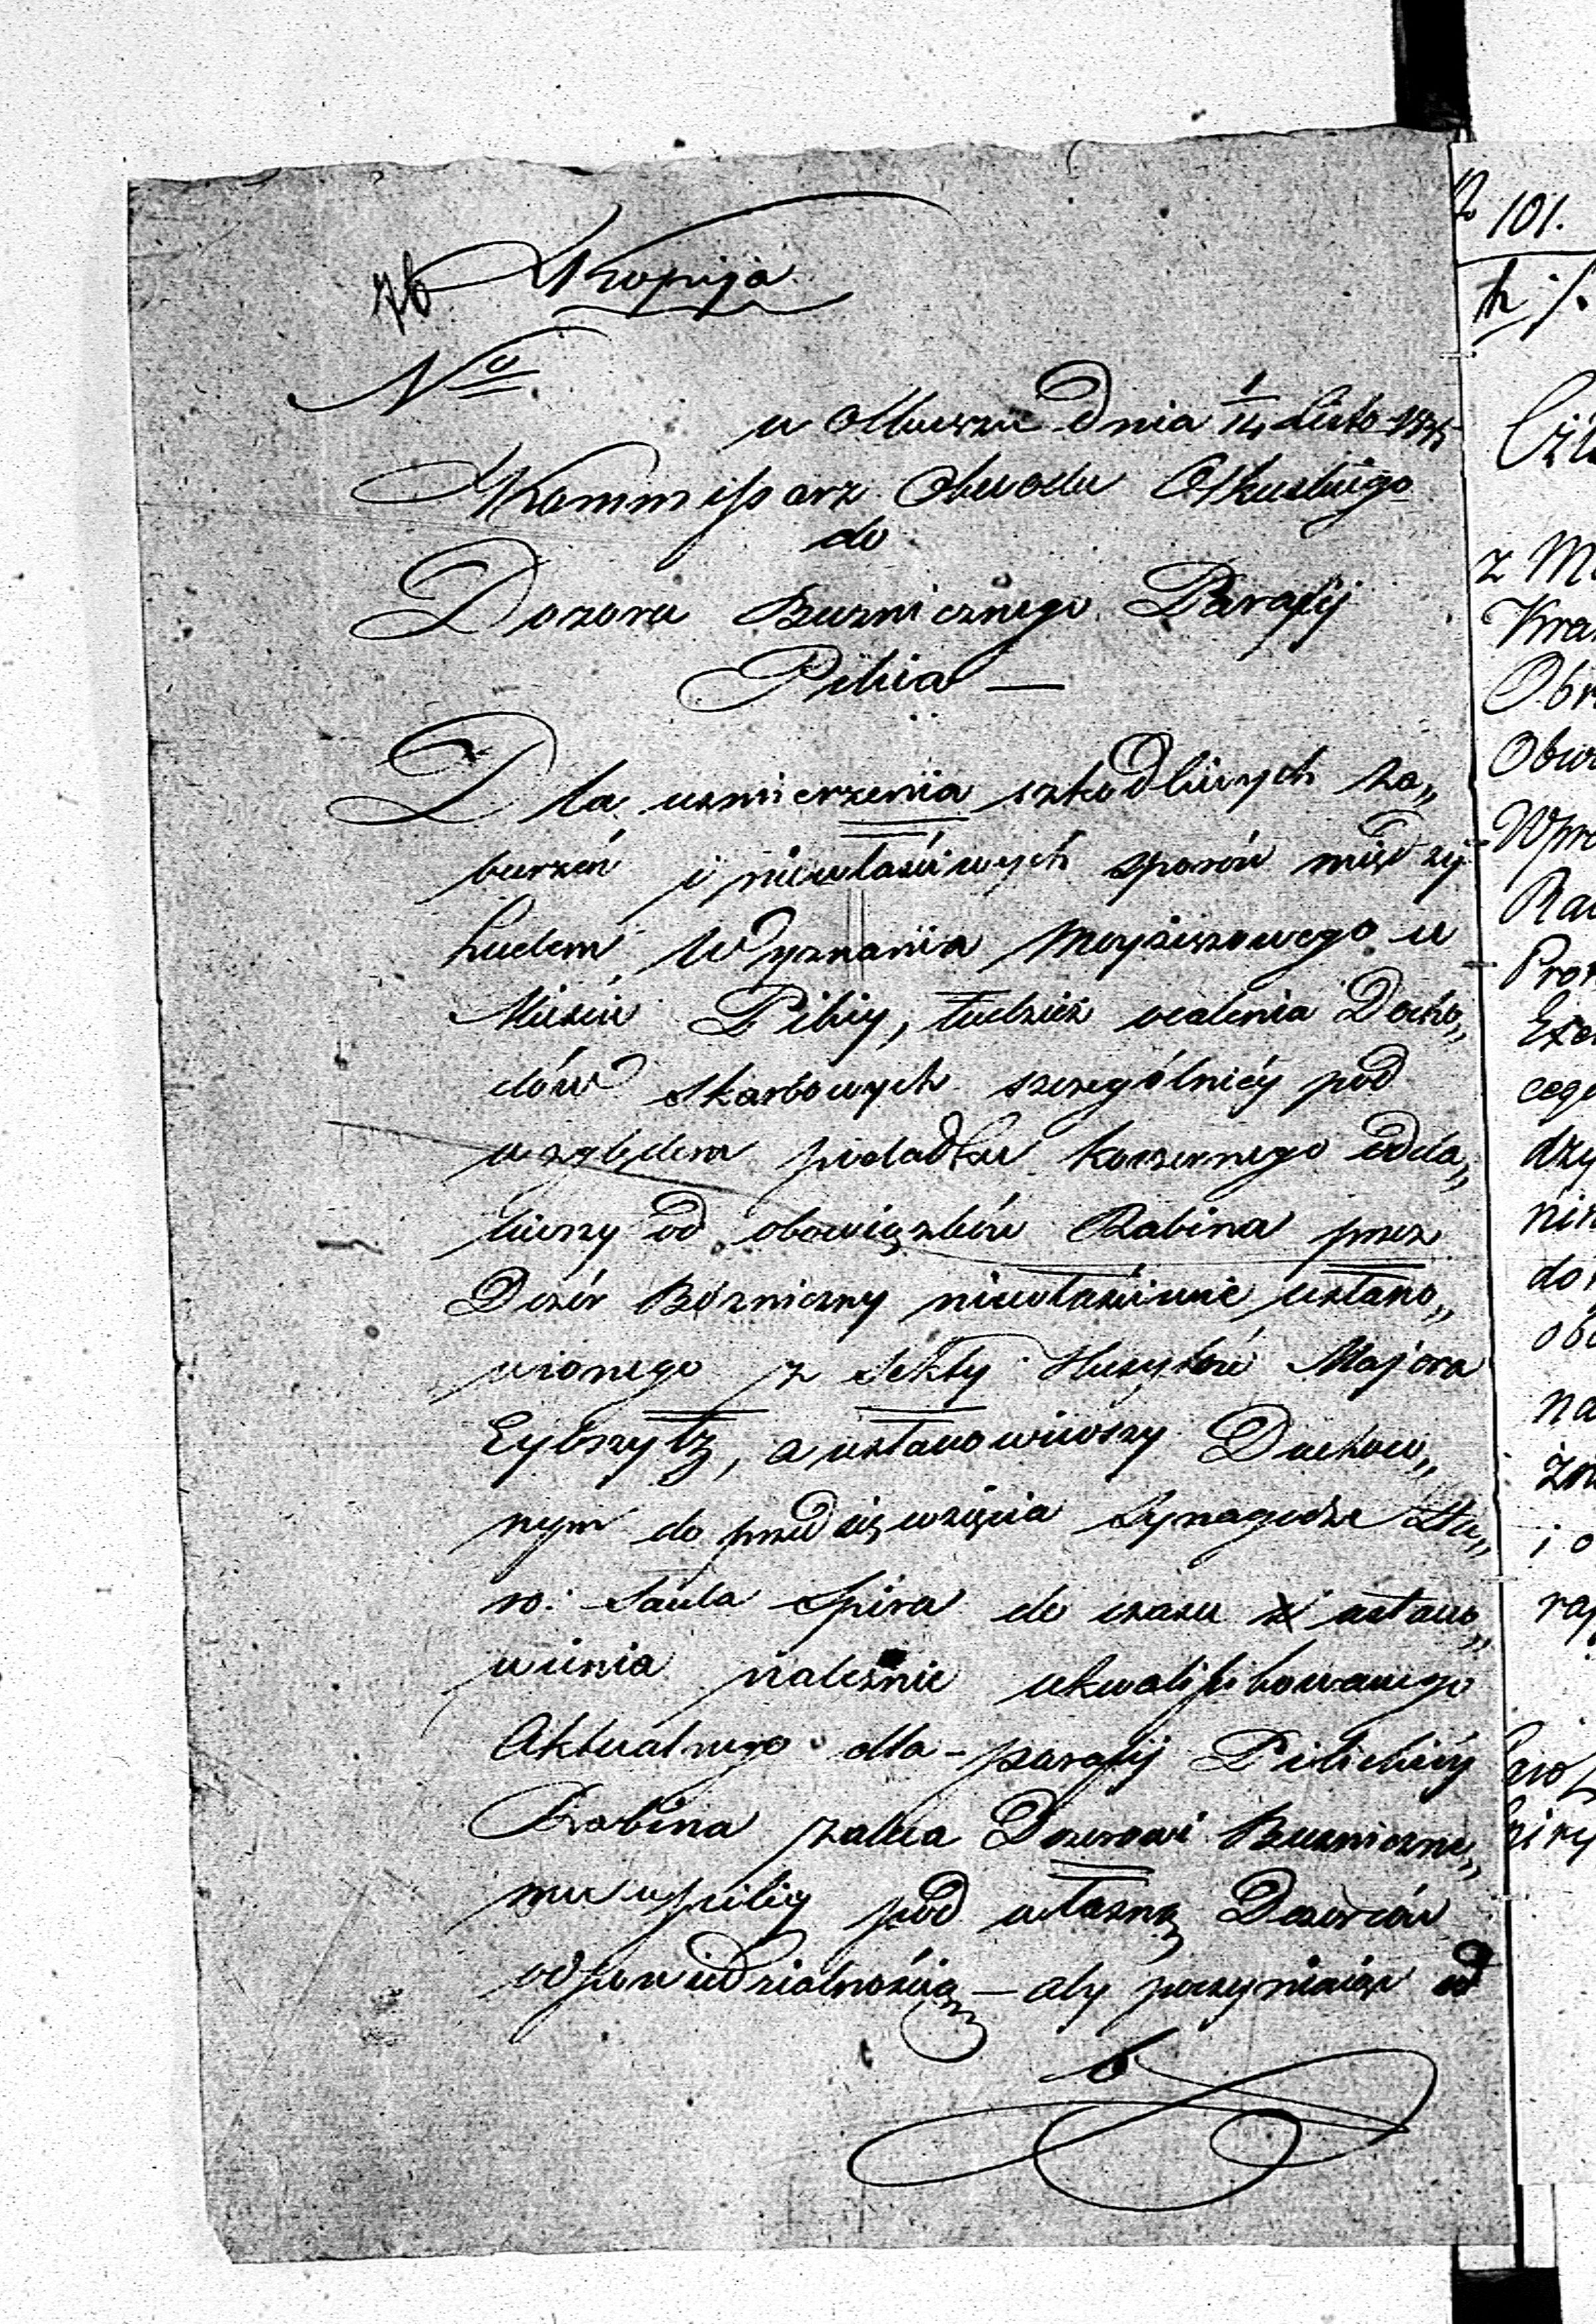 76 Kopija
No
w Olkuszu Dnia 1/14 Listo
Kommissarz Obwodu Olkuskiego
do
Dozoru Buznicznego Parafij
Pilica —
Dla usmierzenia szkodliwych za„
burzeń i niewłaściwych sporów między
Ludem Wyznania Moyżeszowego w
Mieście Pilicy, tudzież ocalenia Docho„
dów Skarbowych szczególniéy pod
względem podatku koszernego odda„
liwszy od obowiązków Rabina przez
Dozór Bózniczny niewłaściwie ustano„
wionego z Sekty Husytów Majora
Eybszytz, a ustanowiwszy Duchow„
nym do przedsięwzięcia Synagodze Sta„
ro: Saula Spira do czasu ustano„
wienia należnie ukwalifikowanego
Aktualnego dla parafij Pilickiéy
Rabina zaleca Dozorowi Buzniczne„
mu w Pilicy pod własną Dozorców
odpowiedzialnością — aby poczyniając od
101.
z M
Kra
Obr
Obw
Wpro
Ra
Pro
Exe
cego
dzy
nin
do
obo
na
i o
rap